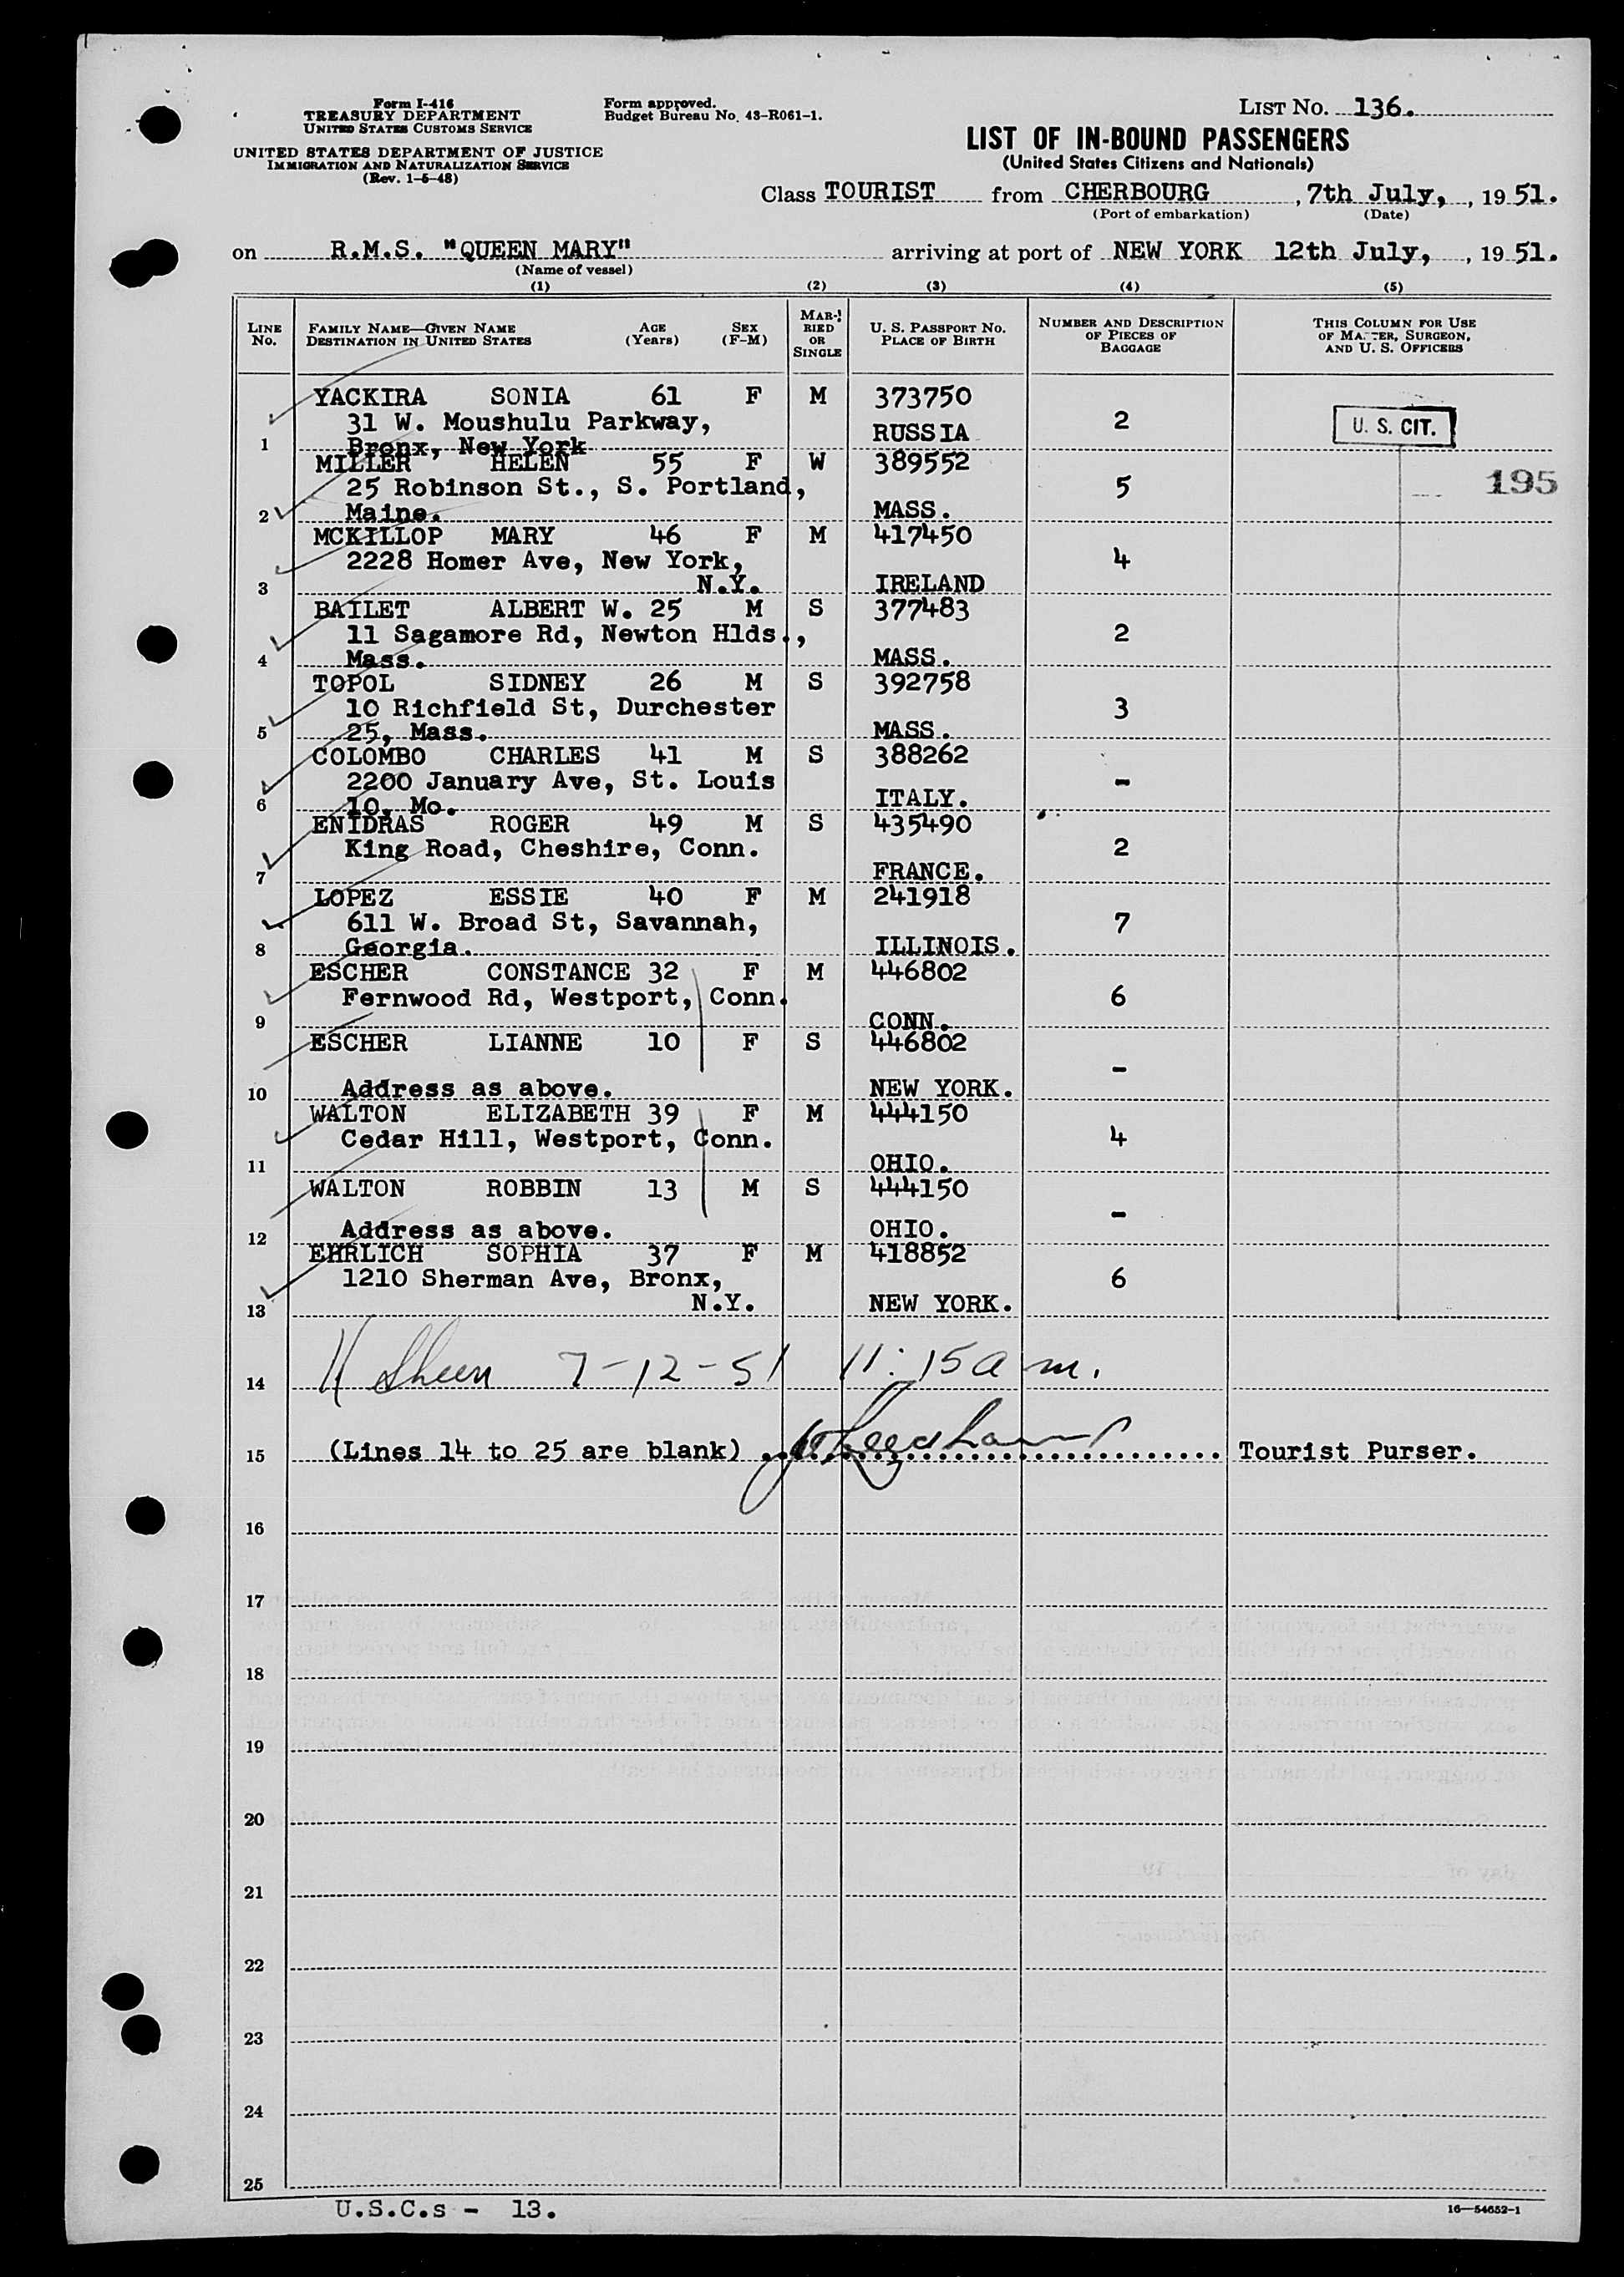 Form I-416
TREASURY DEPARTMENT
UNITED STATES CUSTOMS SERVICE
UNITED STATES DEPARTMENT OF JUSTICE
IMMIGRATION AND NATURALIZATION SERVICE
(Rev. 1-5-48)
Form approved.
Budget Bureau No. 43-R061-1.
LIST NO. 136.
LIST OF IN-BOUND PASSENGERS
(United States Citizens and Nationals)
Class TOURIST from CHERBOURG, 7th July, 1951.
(Port of embarkation) (Date)
on R.M.S. "QUEEN MARY" arriving at port of NEW YORK 12th July, 1951.
(Name of vessel)
(1) (2) (3) (4) (5)
LINE No. FAMILY NAME—GIVEN NAME DESTINATION IN UNITED STATES AGE (Years) SEX (F-M) MARRIED OR SINGLE U. S. PASSPORT NO. PLACE OF BIRTH NUMBER AND DESCRIPTION OF PIECES OF BAGGAGE THIS COLUMN FOR USE OF MASTER, SURGEON, AND U. S. OFFICERS
YACKIRA SONIA 61 F M 373750
31 W. Moushulu Parkway, 2 U. S. CIT.
1 Bronx, New York RUSSIA
MILLER HELEN 55 F W 389552
25 Robinson St., S. Portland, 5 195
2 Maine. MASS.
MCKILLOP MARY 46 F M 417450
2228 Homer Ave, New York, 4
3 N.Y. IRELAND
BAILET ALBERT W. 25 M S 377483
11 Sagamore Rd, Newton Hlds., 2
4 Mass. MASS.
TOPOL SIDNEY 26 M S 392758
10 Richfield St, Durchester 3
5 25, Mass. MASS.
COLOMBO CHARLES 41 M S 388262
2200 January Ave, St. Louis -
6 10, Mo. ITALY.
ENIDRAS ROGER 49 M S 435490
King Road, Cheshire, Conn. 2
7 FRANCE.
LOPEZ ESSIE 40 F M 241918
611 W. Broad St, Savannah, 7
8 Georgia. ILLINOIS.
ESCHER CONSTANCE 32 F M 446802
Fernwood Rd, Westport, Conn. 6
9 CONN.
ESCHER LIANNE 10 F S 446802
-
10 Address as above. NEW YORK.
WALTON ELIZABETH 39 F M 444150
Cedar Hill, Westport, Conn. 4
11 OHIO.
WALTON ROBBIN 13 M S 444150
-
12 Address as above. OHIO.
EHRLICH SOPHIA 37 F M 418852
1210 Sherman Ave, Bronx, 6
13 N.Y. NEW YORK.
14 Sheen 7-12-51 11:15 a m.
15 (Lines 14 to 25 are blank) Tourist Purser.
16
17
18
19
20
21
22
23
24
25
U.S.C.s - 13.
16—54652-1